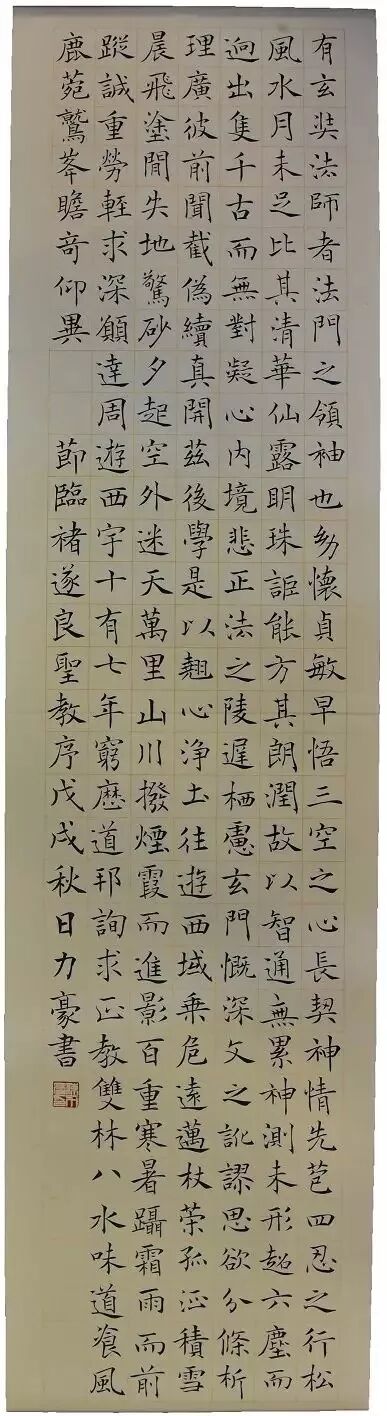 有玄奘法師者法門之領袖也幼懷貞敏早悟三空之心長契神情先苞四忍之行松
風水月未足比其清華仙露明珠詎能方其朗潤故以智通無累神測未形超六塵而
迥出隻千古而無對凝心内境悲正法之陵遲栖慮玄門慨深文之訛謬思欲分條析
理廣彼前聞截偽續真開茲後學是以翹心淨土往遊西域乗危遠邁杖策孤征積雪
晨飛塗閒失地驚砂夕起空外迷天萬里山川撥煙霞而進影百重寒暑躡霜雨而前
蹤誠重勞輕求深願達周遊西宇十有七年窮歷道邦詢求正教雙林八水味道飡風
鹿菀鷲峯瞻奇仰異 節臨褚遂良聖教序戊戌秋日力豪書